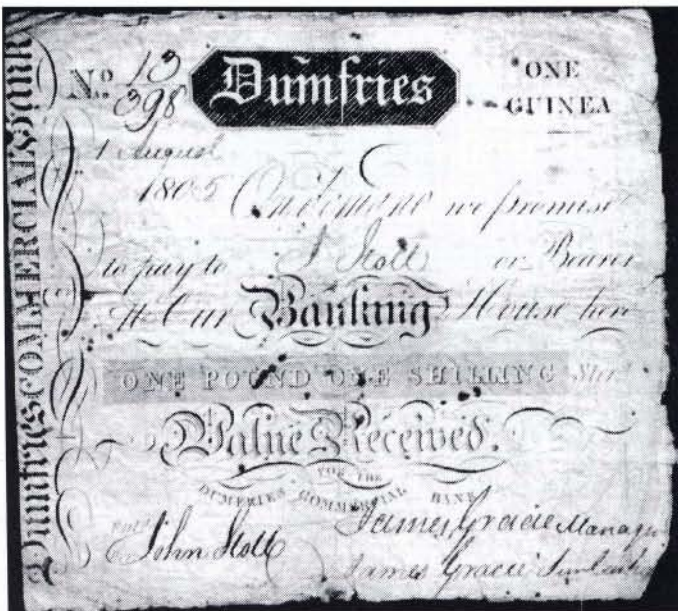 Dumfries COMMERCIAL BANK
No. 13
398
Dumfries
ONE
GUINEA
1 August
1805 On demand we promise
to pay to J Stott or Bearer
At Our Banking House here
ONE POUND ONE SHILLING Ster.
Value Received.
FOR THE
DUMFRIES COMMERCIAL BANK
John Stott
James Gracie Manager
James Gracie